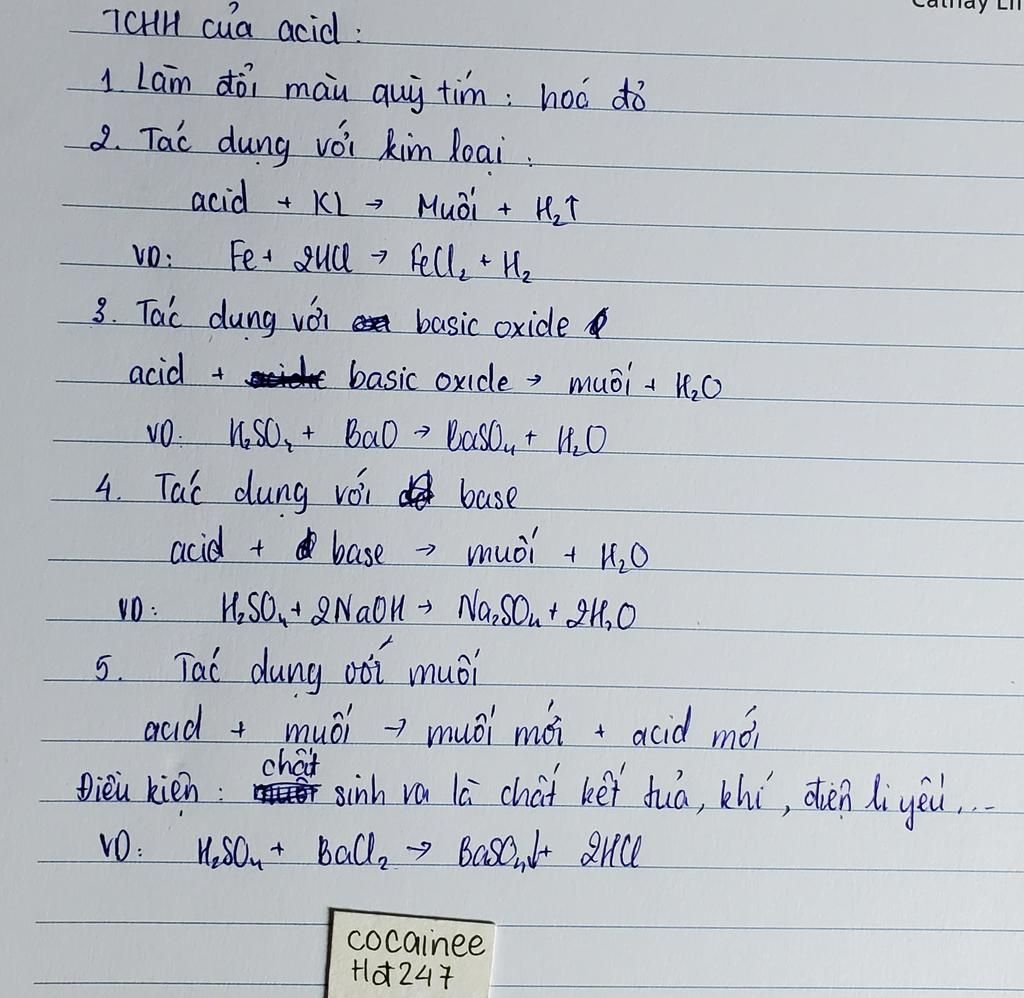 Cathay Li
TCHH của acid :
1 Làm đổi màu quỳ tím : hoá đỏ
2. Tác dụng với kim loại :
acid + Kl → Muối + H₂↑
VD: Fe + 2HCl → FeCl₂ + H₂
3. Tác dụng với basic oxide
acid + basic oxide → muối + H₂O
VD. H₂SO₄ + BaO → BaSO₄ + H₂O
4. Tác dụng với base
acid + base → muối + H₂O
VD: H₂SO₄ + 2NaOH → Na₂SO₄ + 2H₂O
5. Tác dụng với muối
acid + muối → muối mới + acid mới
Điều kiện : chất sinh ra là chất kết tủa, khí, điện li yếu,...
VD: H₂SO₄ + BaCl₂ → BaSO₄↓ + 2HCl
cocainee
Hđ247